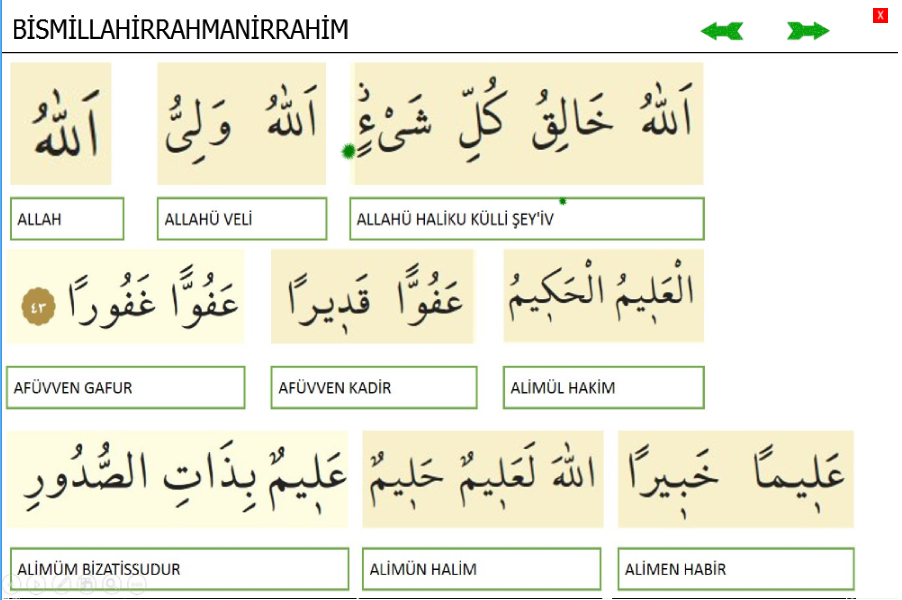 BİSMİLLAHİRRAHMANİRRAHİM
X
اَللّٰهُ
اَللّٰهُ وَلِىُّ
اَللّٰهُ خَالِقُ كُلِّ شَىْءٍۘ
ALLAH
ALLAHÜ VELİ
ALLAHÜ HALİKU KÜLLİ ŞEY'İV
عَفُوًّا غَفُورًا ٤٣
عَفُوًّا قَد۪يرًا
الْعَل۪يمُ الْحَك۪يمُ
AFÜVVEN GAFUR
AFÜVVEN KADİR
ALİMÜL HAKİM
عَل۪يمٌ بِذَاتِ الصُّدُورِ
اللّٰهَ لَعَل۪يمٌ حَل۪يمٌ
عَل۪يمًا خَب۪يرًا
ALİMÜM BİZATİSSUDUR
ALİMÜN HALİM
ALİMEN HABİR